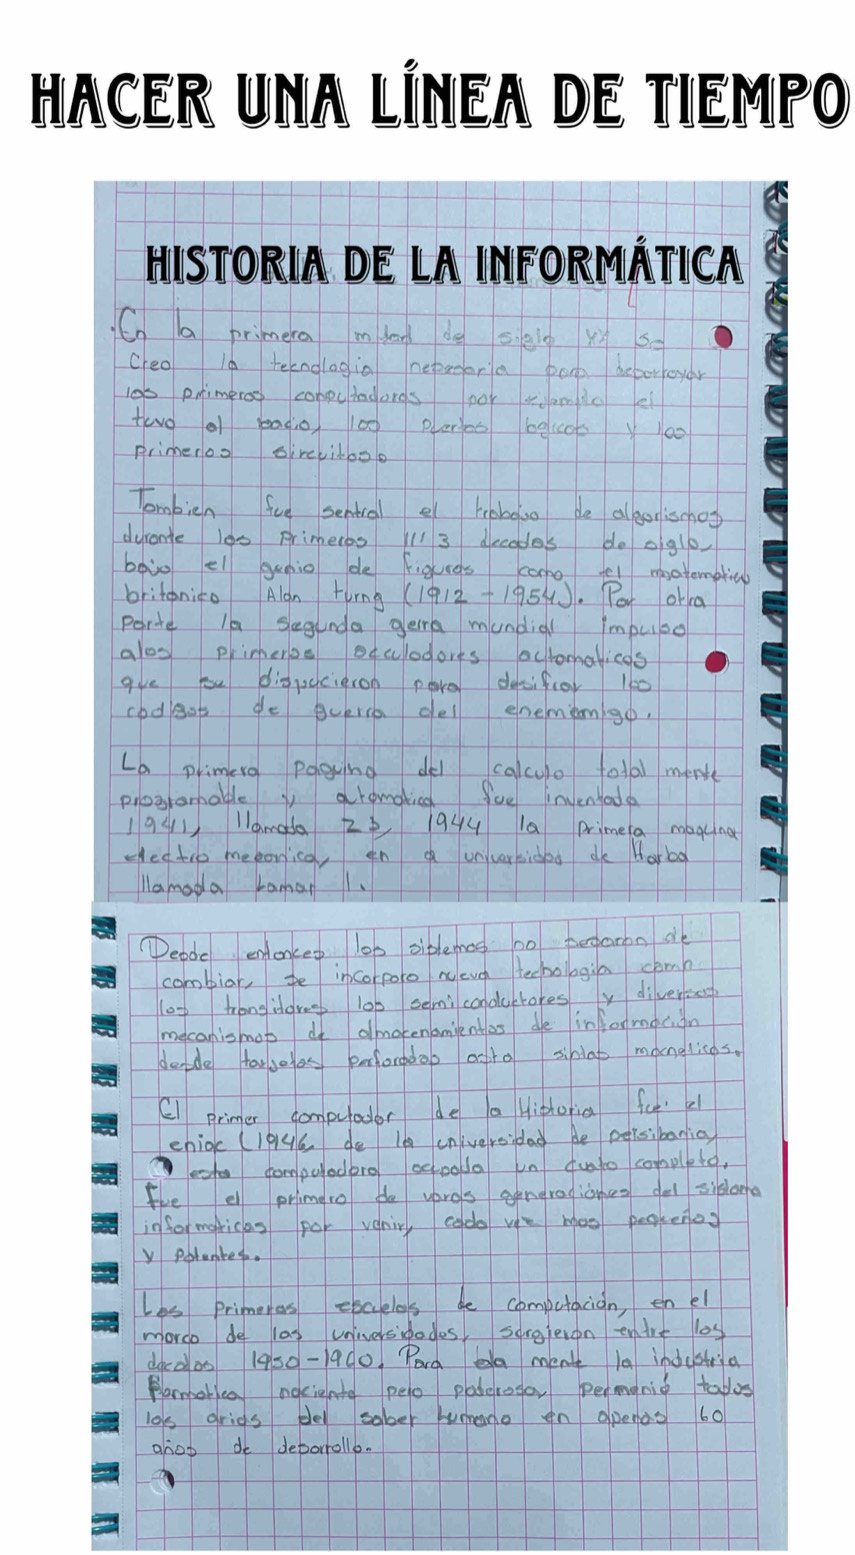 HACER UNA LÍNEA DE TIEMPO
HISTORIA DE LA INFORMÁTICA
En la primera de siglo XX se
Creo la tecnologia para
los primeros computadores por ejemplo el
tuvo al bacio, los y los
primeros sircuitos.
Tombien fue sentral el trabajo de algorismos
durante los primeros 3 decadas de siglo,
bajo el genio de figuras como el matematico
britanico Alan turng (1912-1954). Por otra
parte la segunda gerra mundial impulso
alos primeros actomaticos
que se dispucieron para desifrar los
codigos de guerra del enemiemigo.
La primera del calculo total mente
programable y atomatica fue inventada
1941, llamada Z3, 1944 la primera maquina
electro meconica, en a universidad de Harba
llamada 1.
Desde entonces los sistemas no de
combiar, se incorporo nueva techologia como
los transitores los semiconductores y diversos
mecanismos de almacenamientos de información
desde tarjetas perforadas asta sintas macneticas.
El primer computador de la Historia fue el
eniac (1946 de la universidad de
esta computadora un cuato completo,
fue el primero de varas generaciónes del sistema
informaticas por venir, cada vez mas pequeños
y potentes.
Las primeras escuelas de computación, en el
marco de las universidades, surgieron entre los
1950-1960. Para mente la industria
naciente pero poderosa, todos
los arias del saber humano en apenas 60
años de desarrollo.